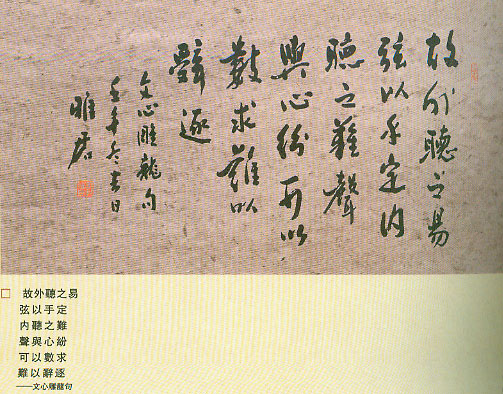 故外聽之易
弦以手定内
聽之難聲
與心紛可以
數求難以
辭逐
文心雕龍句
壬午冬
日
雕君
故外聽之易
弦以手定
内聽之難
聲與心紛
可以數求
難以辭逐
——文心雕龍句